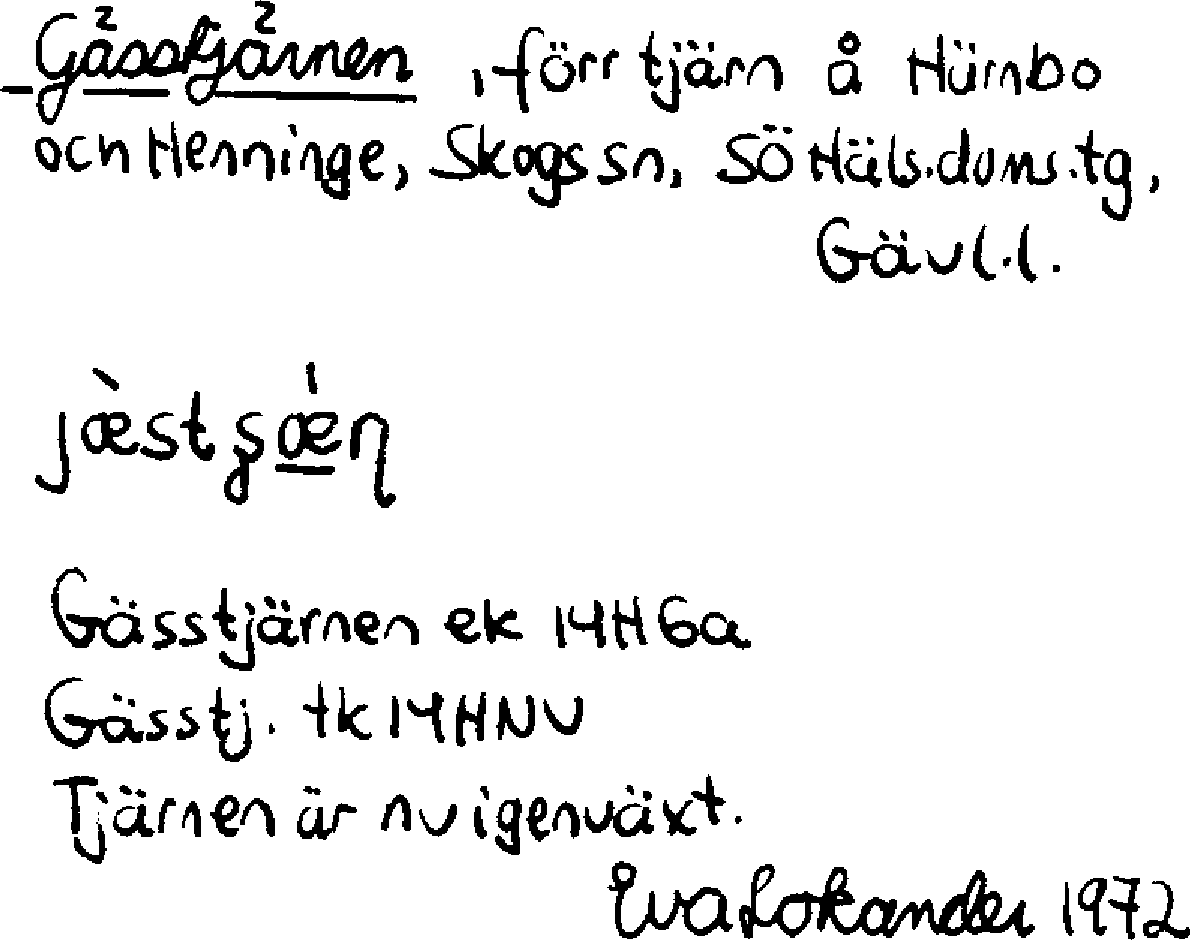 Gässtjärnen, förr tjärn å Hürnbo
och Henninge, Skogs sn, SÖ Häls. doms. tg,
Gävl. l.
Gässtjärnen ek 14H6a
Gässtj. tk 14HNV
Tjärnen är nu igenväxt.
Eva Lokander 1972